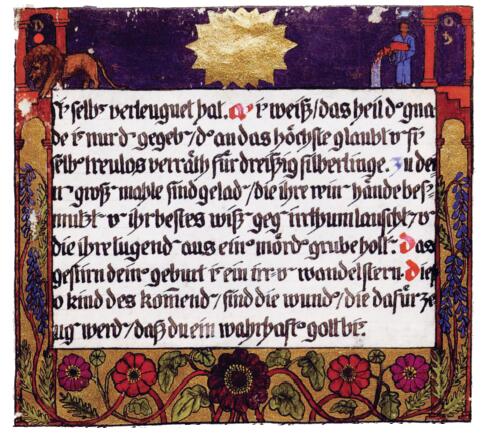 si' selbs verleugnet hat. A i' weiß/das heil d° gna
de i' nur d' gegeb'/d° an das höchste glaubt v' si'
selb' treulos verräth für dreißig silberlinge. Zu dei
n' groß' mahle sind gelad'/die ihre rein' hände bes
mutzt' v' ihr bestes wiß' geg' irrthum tauscht'/v'
die ihre tugend' aus ein° mörd° grube holt'. Das
gestirn dein° geburt i' ein irr- v' wandelstern. Dies'
o kind des kom̄end'/sind die wund'/die dafür ze
ug' werd'/daß du ein wahrhaft° gott bi'.